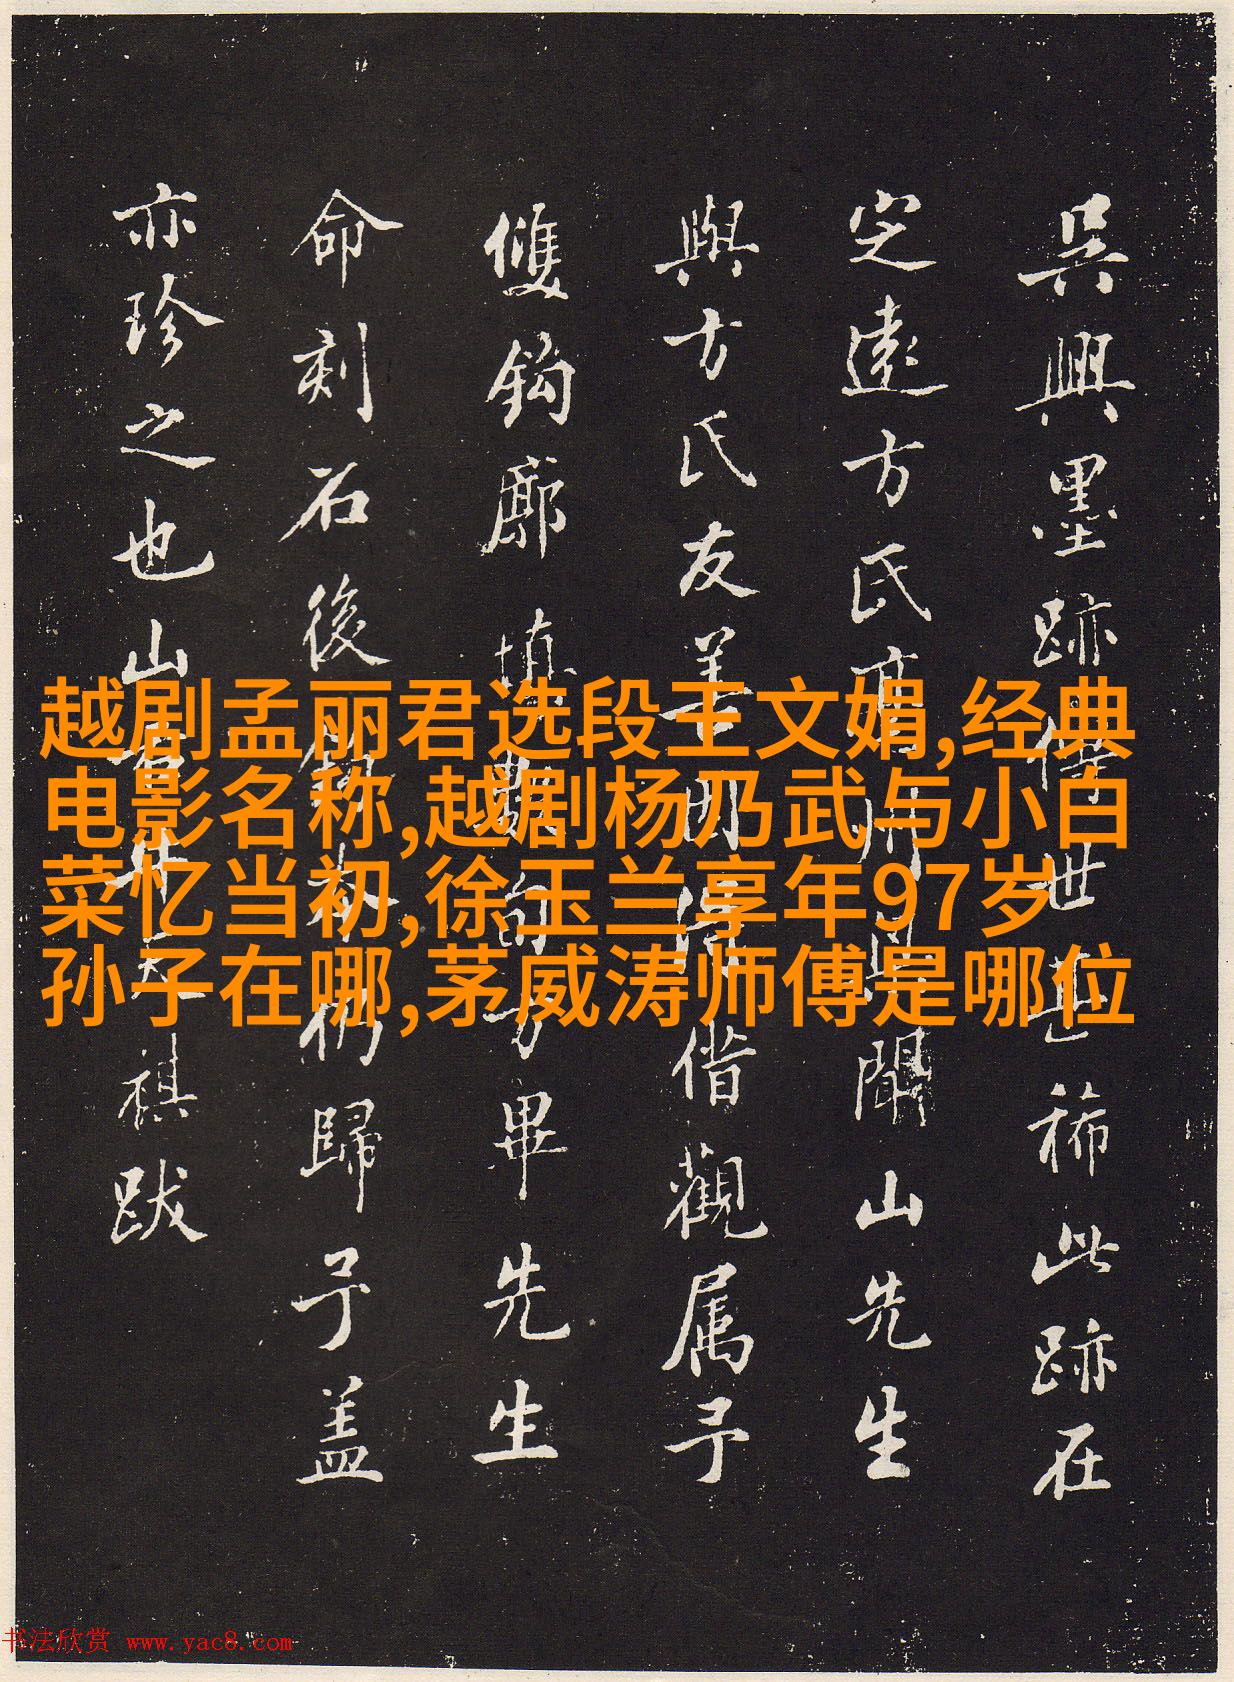 吳興墨跡傳世稀此跡在
定遠方氏聞山先生
與方氏友善借觀属予
雙鈎廓填數旬方畢先生
命刻石後鈎本仍歸予盖
亦珍之也山祺跋
越剧孟丽君选段王文娟,经典
电影名称,越剧杨乃武与小白
菜忆当初,徐玉兰享年97岁
孙子在哪,茅威涛师傅是哪位
书法欣赏 www.yac8.com